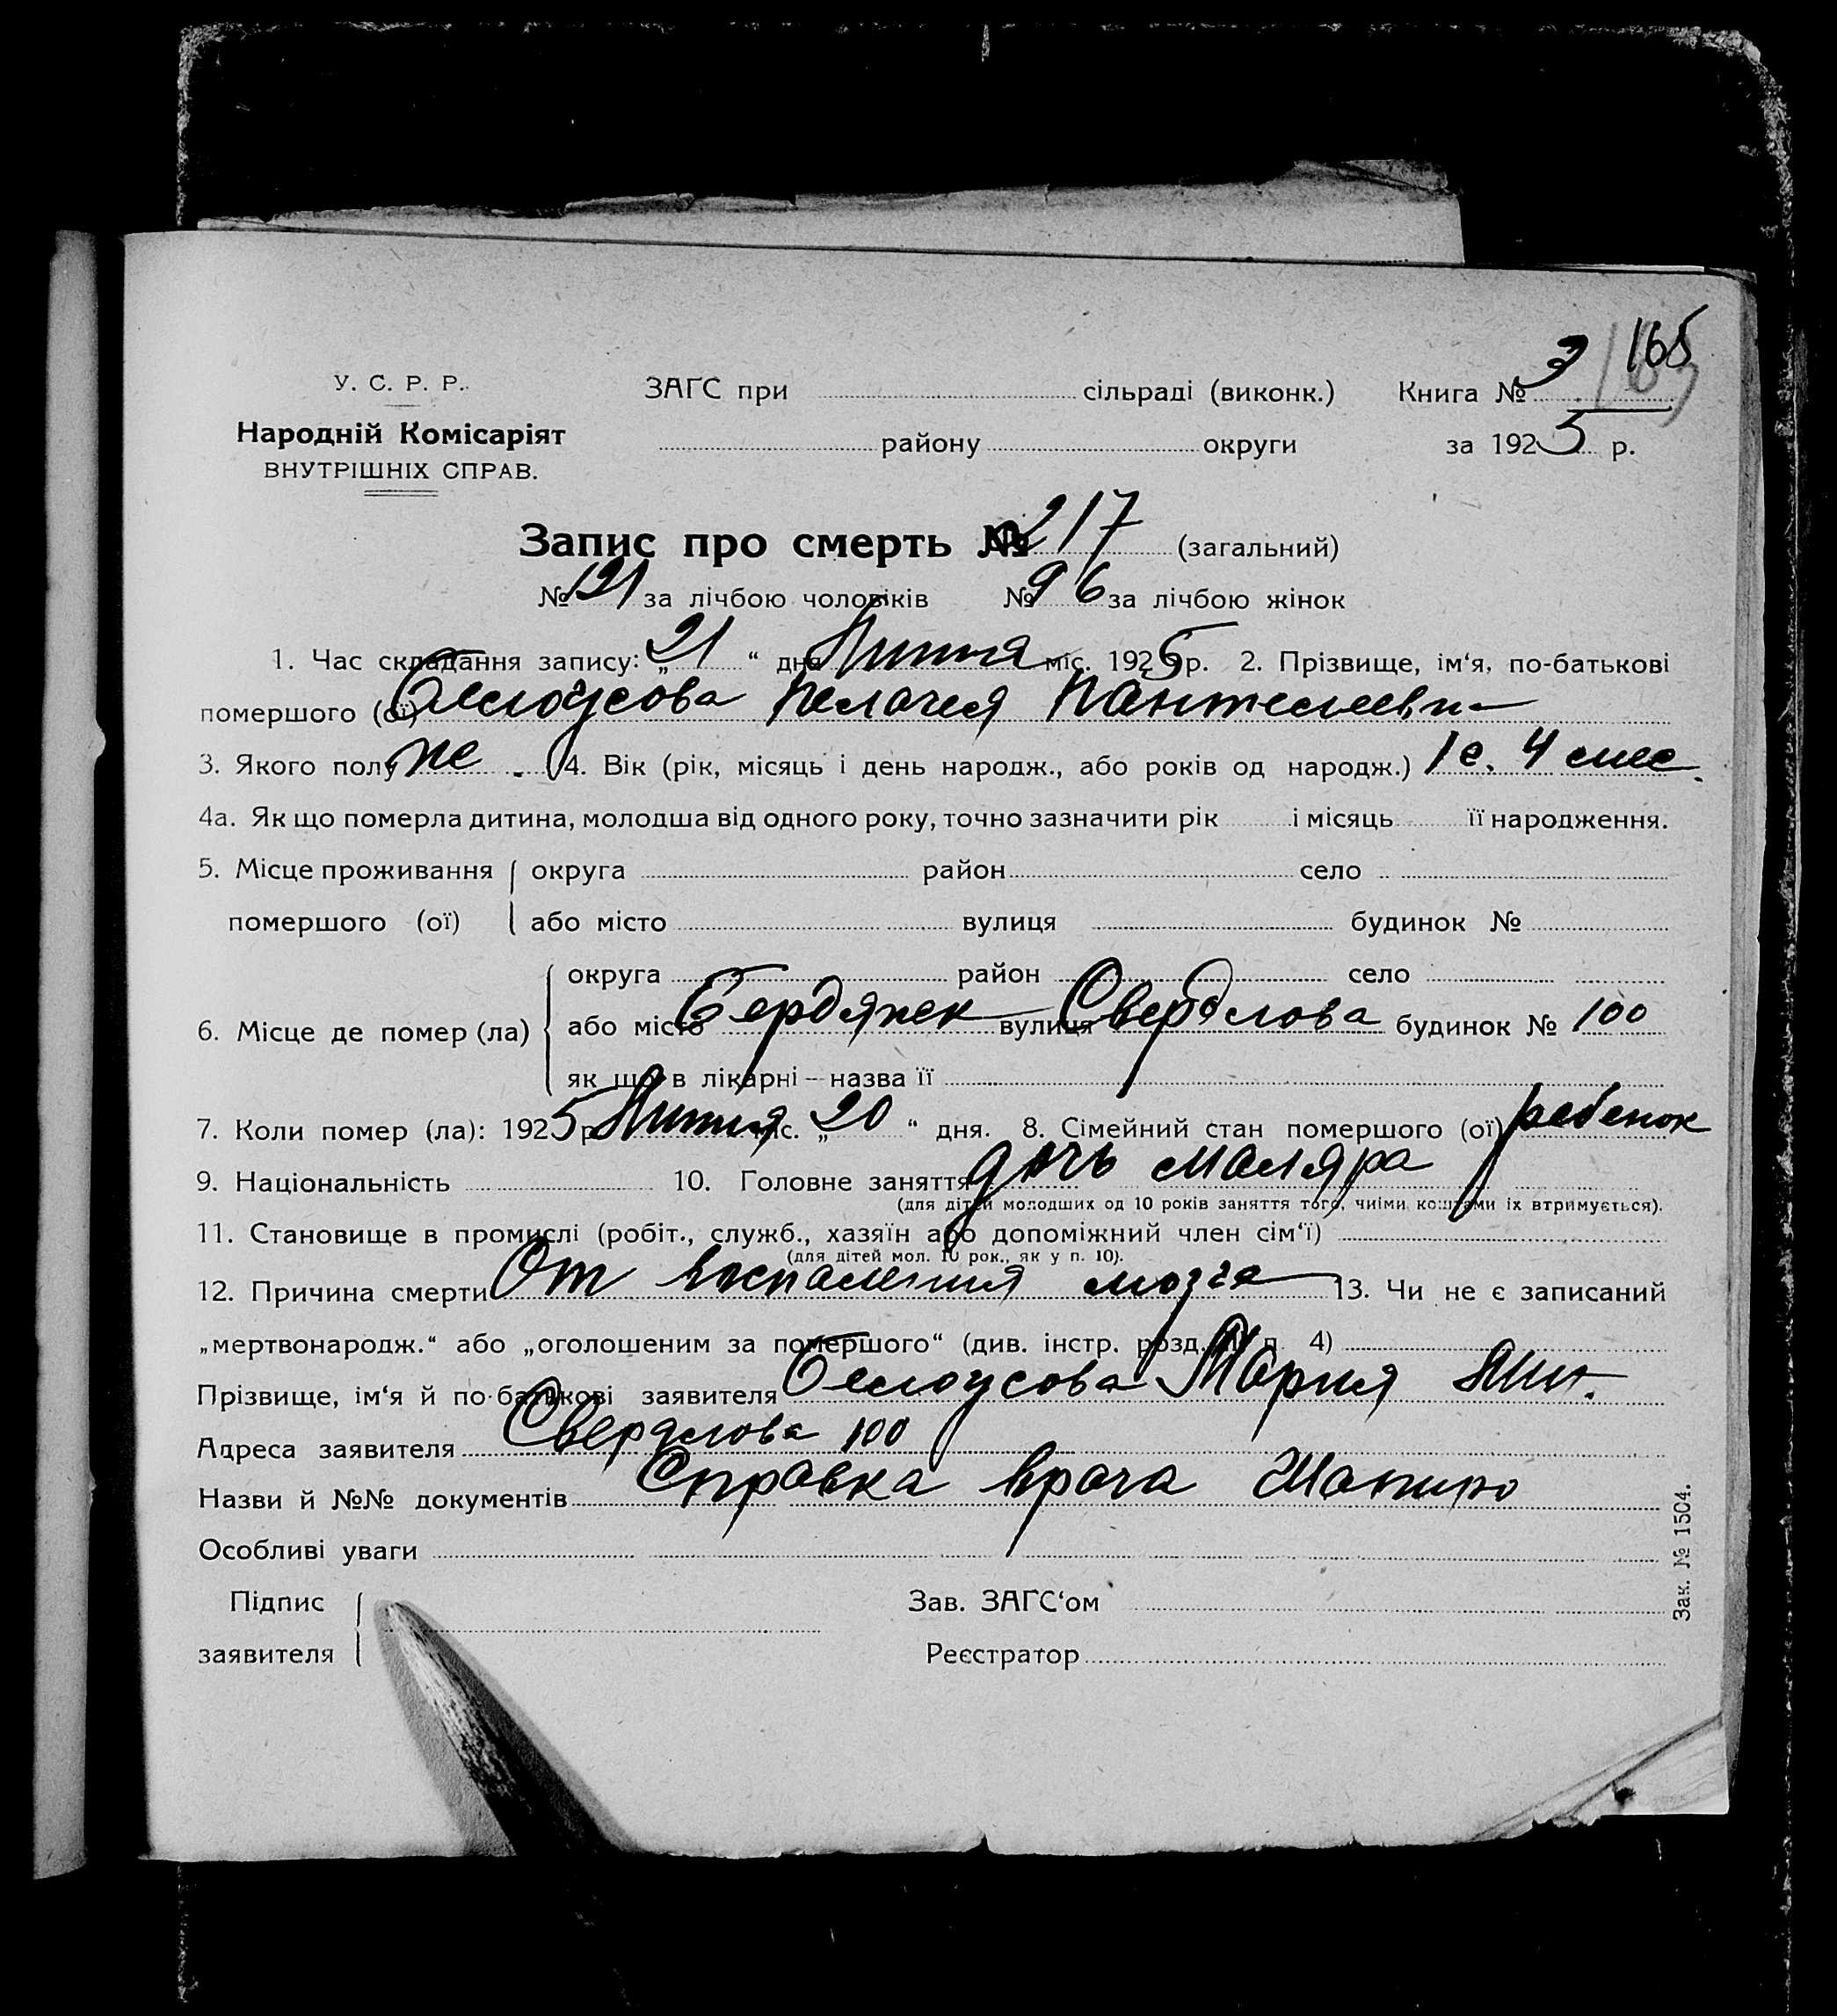 165
У. С. Р. Р. ЗАГС при сільраді (виконк.) Книга № 3
Народній Комісаріят району округи за 1925 р.
ВНУТРІШНІХ СПРАВ.
Запис про смерть № 217 (загальний)
№ 121 за лічбою чоловіків № 96 за лічбою жінок
1. Час складання запису: „21“ дня Липня міс. 1925 р. 2. Прізвище, ім‘я, по-батькові
помершого (ої) Белоусова Пелагея Пантелеевн
3. Якого полу же. 4. Вік (рік, місяць і день народж., або років од народж.) 1 г. 4 мес.
4а. Як що померла дитина, молодша від одного року, точно зазначити рік і місяць її народження.
5. Місце проживання округа район село
помершого (ої) або місто вулиця будинок №
округа район село
6. Місце де помер (ла) або місто Бердянск вулиця Свердлова будинок № 100
як що в лікарні – назва її
7. Коли помер (ла): 1925 р. Липня міс. „20“ дня. 8. Сімейний стан помершого (ої) ребенок
9. Національність 10. Головне заняття дочь маляра
(для дітей молодших од 10 років заняття того, чиїми коштами їх втримується).
11. Становище в промислі (робіт., служб., хазяїн або допоміжний член сім‘ї)
(для дітей мол. 10 рок., як у п. 10).
12. Причина смерти От воспаления мозга 13. Чи не є записаний
„мертвонародж.“ або „оголошеним за помершого“ (див. інстр. розд. п. 4)
Прізвище, ім‘я й по-батькові заявителя Белоусова Мария
Адреса заявителя Свердлова 100
Назви й №№ документів Справка врача Шапиро
Особливі уваги
Підпис Зав. ЗАГС‘ом
заявителя Реєстратор
Зак. № 1504.